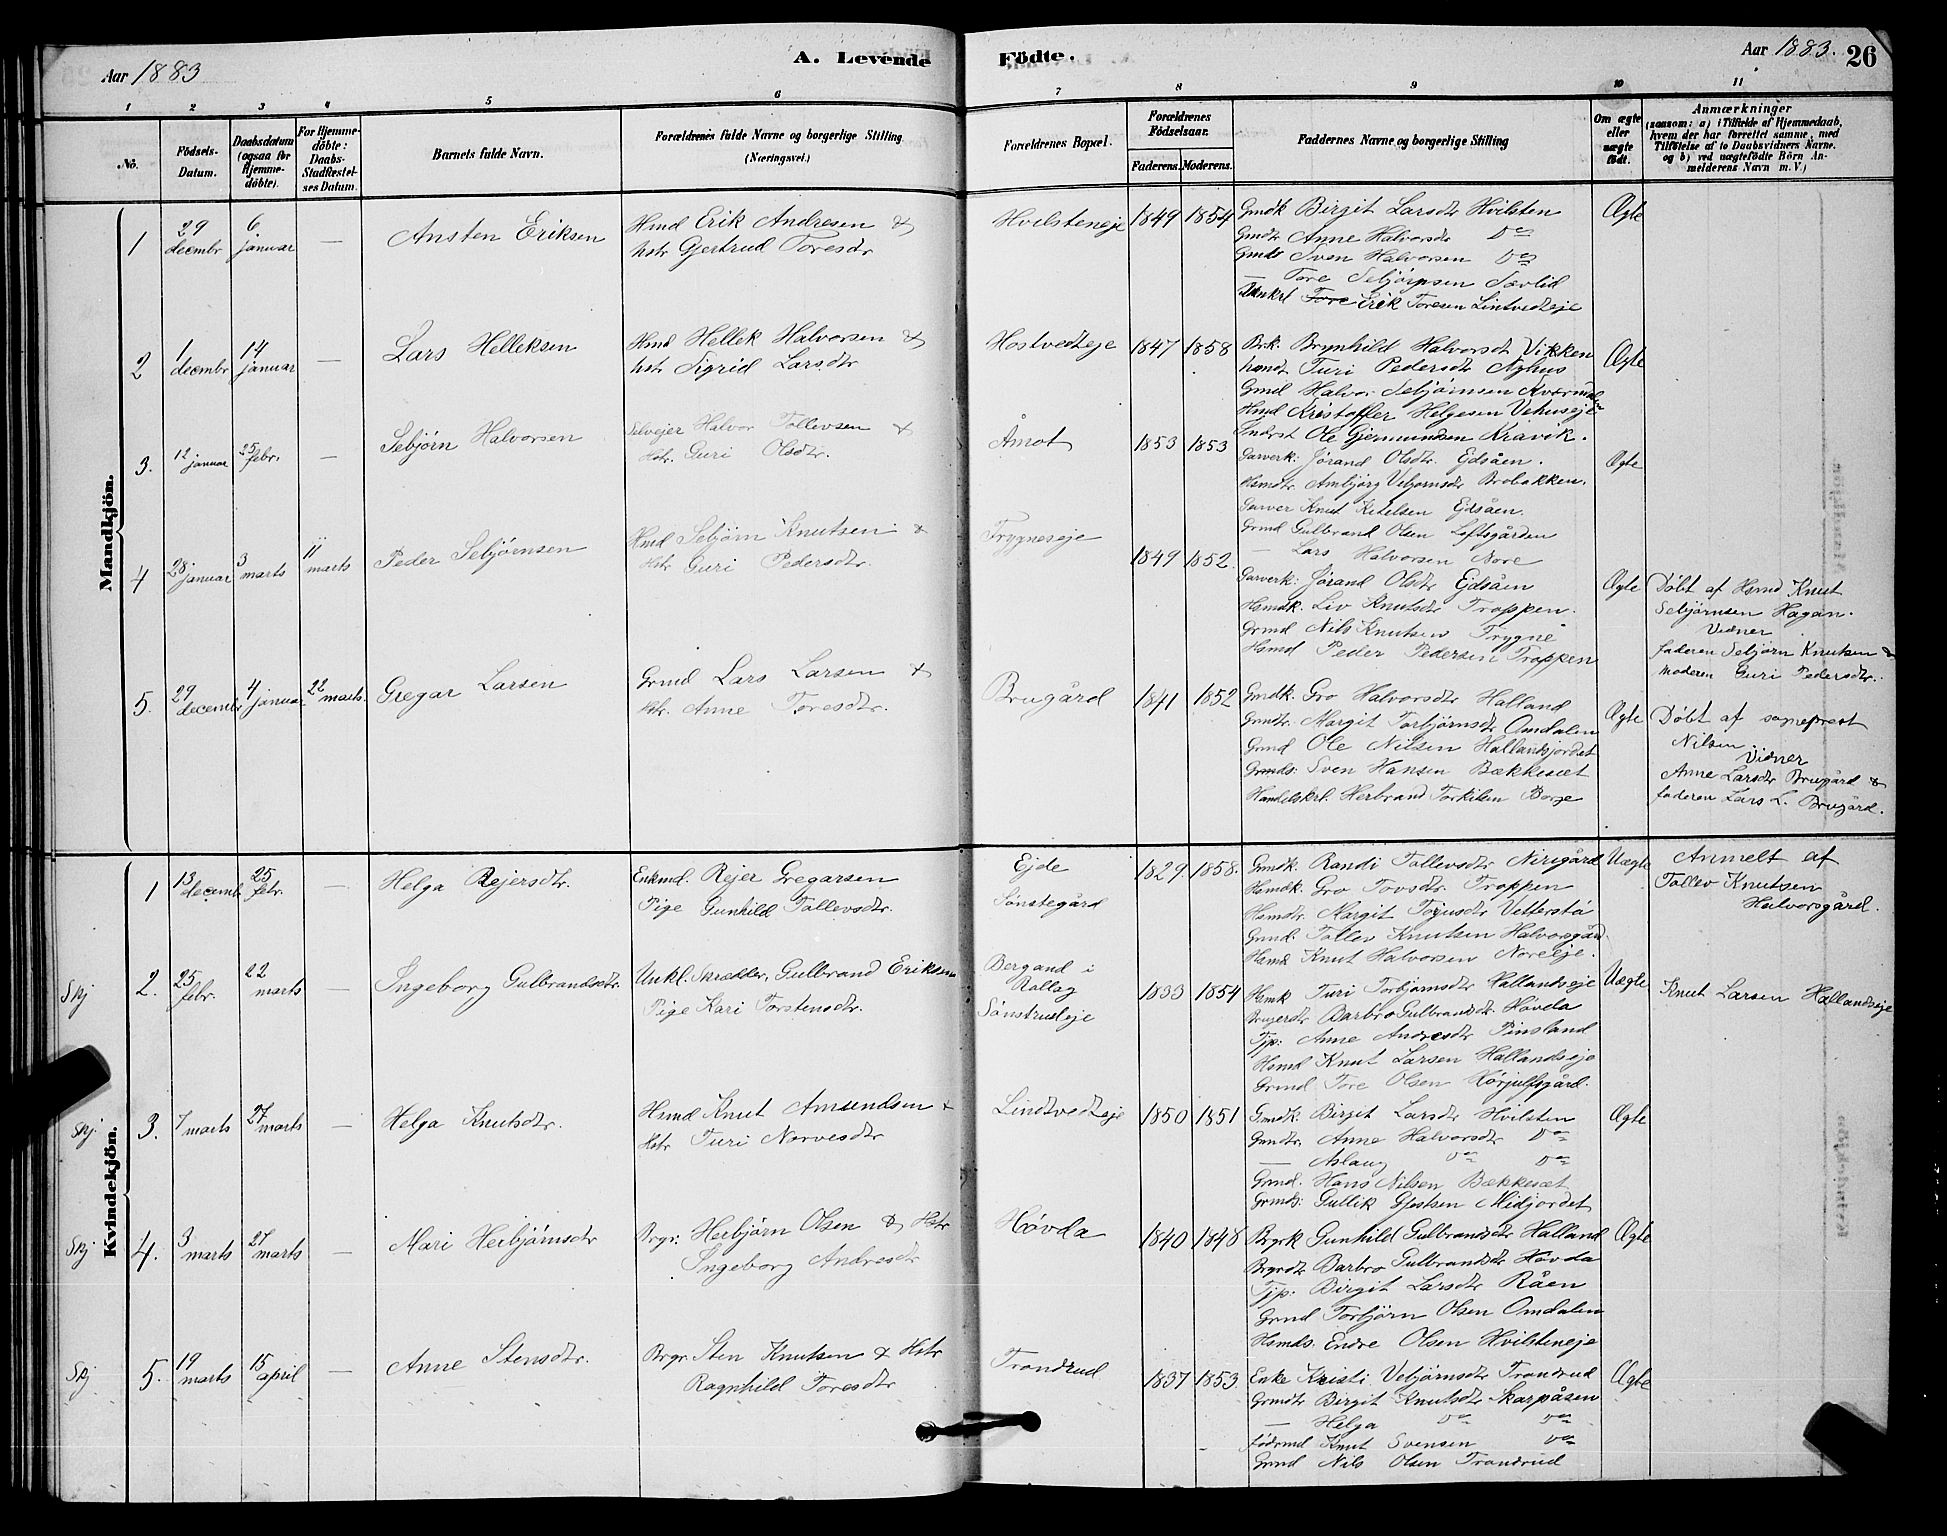 Aar 1883
A. Levende
Födte.
Aar 1883.
26
1
2
3
4
5
6
7
8
9
10
11
No.
Födsels-
Datum.
Daabsdatum
(ogsaa for
Hjemme-
döbte).
For Hjemme-
döbte:
Daabs-
Stadfæstel-
ses Datum.
Barnets fulde Navn.
Forældrenes fulde Navne og borgerlige Stilling
(Næringsvei.)
Forældrenes Bopæl.
Forældrenes
Födselsaar.
Faderens.
Moderens.
Faddernes Navne og borgerlige Stilling
Om ægte
eller
uægte
födt.
Anmærkninger
(saasom: a) i Tilfælde af Hjemmedaab,
hvem der har forrettet samme, med
Tilföielse af to Daabsvidners Navne.
og b) ved uægtefödte Börn An-
melderens Navn m. V.)
Mandkjön.
1
29
decembr
6.
januar
—
Ansten Eriksen
Hmd Erik Andresen &
hstr Gjertrud Toresdr
Hvilsteneje
1849
1854
Gmdk Birgit Larsdr Hvilsten
Gmdtr Anne Halvorsdr Do
Gmds Sven Halvorsen Do
— Tore Sebjörnsen Sævlid
Unkrl Tore Erik Toresen Lintvedteje
Ægte
2
1
decembr
14
januar
—
Lars Helleksen
Hmd Hellek Halvorsen &
hstr Sigrid Larsdtr
Hostvedteje
1847
1858
Brk. Brynhild Halvorsdt Vikken
hmdt Turi Pedersdtr Nyhus
Gmd Halvor Sebjörnsen
Hmd Kristoffer Helgesen Vehuseje
Indrst Ole Gjermundsen Kravik.
Ægte
3.
12
januar
25
febr.
—
Sebjörn Halvorsen
Selvejer Halvor Tollevsen &
Hstr. Guri Olsdtr.
Åmot
1853
1853
Garverk: Jörand Olsdtr. Ejdsåen.
Hsmdtr. Ambjörg Vebjörnsdtr Brobakken.
Garver Knut Ketelsen Ejdsåen.
Grmd Gulbrand Olsen Loftsgården
— Lars Halvorsen Nore
Ægte
4
28
januar
3
marts
11
marts
Peder Sebjörnsen
Hmd Sebjörn Knutsen &
Hstr Guri Pedersdtr.
Trygneseje
1849
1852.
Garverk: Jörand Olsdtr Ejdsåen
Hsmdk. Liv Knutsdtr Troppen.
Grmd Nils Knutsen Trygne
Hsmd Peder Pedersen Troppen
Ægte
Döbt af Hsmd Knut
Sebjörnsen Hagan.
Vidner
faderen Sebjörn Knutsen &
moderen Guri Pedersdtr.
5.
29
decembr
4
januar
22
marts.
Gregar Larsen
Grmd Lars Larsen &
Hstr. Anne Toresdtr.
Brugård
1841
1852
Gmdk. Gro Halvorsdtr Halland
Gmdtr. Margit Torbjörnsdtr Omdalen
Grmd Ole Nilsen Hallandsjordet
Grmds: Sven Hansen Bækkesæt
Handelskrl. Herbrand Torkilsen Borge
Ægte
Döbt af sogneprest
Nilsen.
Vidner
Anne Larsdtr Brugård &
faderen Lars L. Brugård.
Kvindekjön.
1
13
decemb.
25
febr.
—
Helga Rejersdtr.
Enkmd. Rejer Gregarsen
Pige Gunhild Tollevsdtr.
Ejde
Sönstegård
1829.
1858.
Gmdk. Randi Tollevsdtr Nirigård
Hsmdk. Gro Tovsdtr. Troppen
Hsmdtr. Margit Tojusdtr Vetterstö
Grmd. Tollev Knutsen Halvorsgård.
Hsmd Knut Halvorsen Noreeje.
Uægte
Anmelt af
Tollev Knutsen
Halvorsgård.
Skj
2.
25
febr.
22
marts
—
Ingeborg Gulbrandsdtr.
Unkl. Skrædder. Gulbrand Eriksen
Pige Kari Torstensdtr.
Bergand i
Rollag
Sönstrudeje
1833
1854
Hsmk Turi Torbjörnsdtr Hallandseje
Brugerdtr Barbro Gulbrandsdtr. Hövda
Tjp: Anne Andresdtr Pinsland
Hsmd Knut Larsen Hallandseje
Grmd Tore Olsen Hörjulfsgård.
Uægte
Knut Larsen Hallandseje
Skj.
3.
7
marts
27
marts
—
Helga Knutsdtr.
Hsmd Knut Amundsen &
Hstr Turi Narvesdtr
Lindtvedteje
1850
1851
Gmdk. Birgit Larsdtr Hvilsten
Gmdtr. Anne Halvorsdtr Do
— Aslaug Do Do
Grmd. Hans Nilsen Bækkesæt
Grmds: Gullik Gjestsen Midjordet
Ægte
Skj
4.
3
marts
27
marts
—
Mari Herbjörnsdtr
Brgr. Herbjörn Olsen & Hstr
Ingeborg Andresdtr
Hövda
1840
1848
Brgrk Gunhild Gulbrandsdtr Halland
Brgrdtr Barbro Gulbrandsdtr Hövda
Tjp: Birgit Larsdtr Råen
Grmd Torbjörn Olsen Omdalen
Hsmds. Endre Olsen Hvilsteneje
Ægte
Skj
5.
19
marts
15
april
—
Anne Stensdtr.
Brgr. Sten Knutsen & Hstr
Ragnhild Toresdtr
Trondrud
1837
1853.
Enke Kristi Vebjörnsdtr Trondrud
Grmdtr Birgit Knutsdtr Skarpåsen
— Helga Do Do
Födrmd Knut Svensen Do
Grmd Nils Olsen Trondrud
Ægte